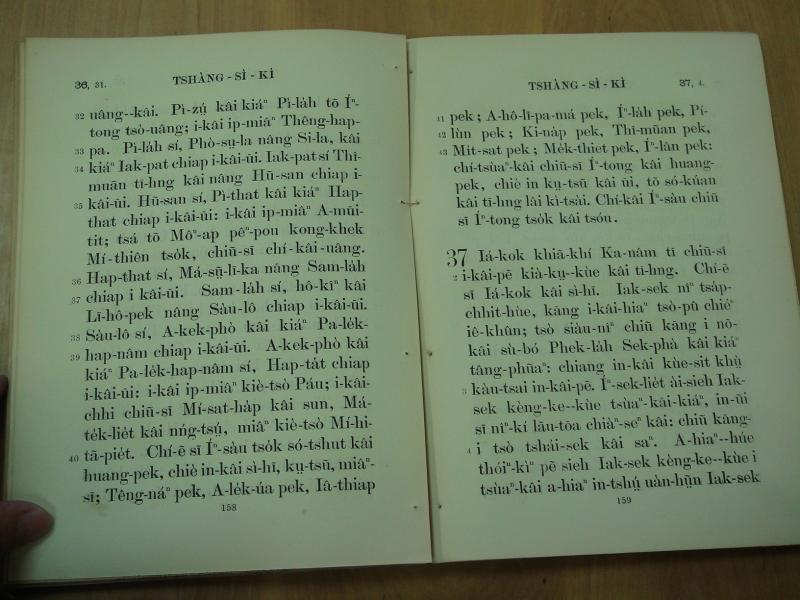 36, 31.
TSHÀNG-SÌ-KÌ
32 uâng--kâi. Pì-zụ́ kâi kiáⁿ Pì-la̍h tõ Íⁿ-
tong tsò-uâng; i-kâi ip-miâⁿ Thêng-hap-
33 pa. Pì-la̍h sí, Phò-sụ-la nâng Si-la, kâi
34 kiáⁿ Iak-pat chiap i-kâi-ūi. Iak-pat sí Thī-
muān tī-hng kâi nâng Hū-san chiap i-
35 kâi-ūi. Hū-san sí, Pì-that kâi kiáⁿ Hap-
that chiap i-kâi-ūi: i-kâi ip-miâⁿ A-mūi-
tit; tsá tõ Môⁿ-ap pêⁿ-pou kong-khek
Mí-thiên tso̍k, chiū-sĩ chí-kâi-uâng.
36 Hap-that sí, Má-sụ̄-lī-ka nâng Sam-la̍h
37 chiap i kâi-ūi. Sam-la̍h sí, hô-kîⁿ kâi
Lī-hô-pek nâng Sàu-lô chiap i-kâi-ūi.
38 Sàu-lô sí, A-kek-phò kâi kiáⁿ Pa-le̍k-
39 hap-nâm chiap i-kâi-ūi. A-kek-phò kâi
kiáⁿ Pa-le̍k-hap-nâm sí, Hap-ta̍t chiap
i-kâi-ūi: i-kâi ip-miâⁿ kiè-tsò Páu; i-kâi-
chhi chiū-sĩ Mí-sat-ha̍p kâi sun, Má-
te̍k-lie̍t kâi nńg-tsụ́, miâⁿ kiè-tsò Mí-hi-
40 tā-pie̍t. Chí-ē sĩ Íⁿ-sàu tso̍k só-tshut kâi
huang-pek, chiè in-kâi sì-hī, kụ-tsū, miâⁿ-
sĩ; Têng-náⁿ pek, A-le̍k-úa pek, Iâ-thiap
158
TSHÀNG-SÌ-KÌ
37, 4.
41 pek; A-hô-lī-pa-má pek, Íⁿ-la̍h pek, Pí-
42 lùn pek; Ki-na̍p pek, Thī-mūan pek,
43 Mit-sat pek; Me̍k-thiet pek, Íⁿ-lân pek:
chí-tsùaⁿ-kâi chiū-sĩ Íⁿ-tong kâi huang-
pek, chiè in kụ-tsū kâi ūi, tõ só-kúan
kâi tī-hng lâi kì-tsài. Chí-kâi Íⁿ-sàu chiū
sĩ Íⁿ-tong tso̍k kâi tsóu.
37 Iá-kok khiā-khí Ka-nâm tī chiū-sĩ
2 i-kâi-pē kià-kụ--kùe kâi tī-hng. Chí-ē
sĩ Iá-kok kâi sì-hī. Iak-sek nîⁿ tsa̍p-
chhit-hùe, kăng i-kâi-hiaⁿ tsò-pû chiéⁿ
iê-khûn; tsò siàu-nîⁿ chiū kăng i nõ-
kâi sù-bó Phek-la̍h Sek-phà kâi kiáⁿ
tâng-phūaⁿ: chiang in-kâi kùe-sit khụ̀
3 kàu-tsai in-kâi-pē. Íⁿ-sek-lie̍t ài-sieh Iak-
sek kèng-ke--kùe tsùaⁿ-kâi-kiáⁿ, in-ūi
sĩ nîⁿ-kí lāu-tōa chiàⁿ-seⁿ kâi: chiū kăng-
4 i tsò tshái-sek kâi saⁿ. A-hiaⁿ--húe
thóiⁿ-kìⁿ pē sieh Iak-sek kèng-ke--kùe i
tsùaⁿ-kâi a-hiaⁿ in-tshụ́ uàn-hṳ̄n Iak-sek
159